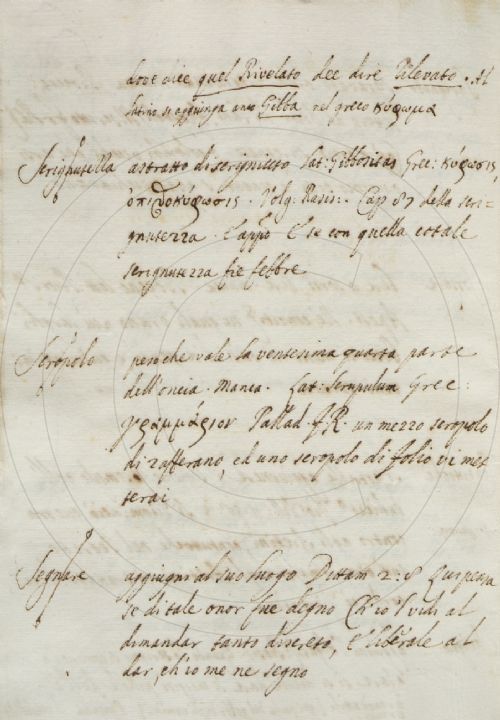 dove dice quel Rivelato dee dire Rilevato. Al
latino si aggiunga anco Gibba nel greco κύφωμα
Serignutezza astratto di serignuto Lat: Gibbositas Gree: κύφωσις
Volg. Rasis: Cap 87 della seri=
gnutezza. E appo E se con quella cotale
serignutezza fie febbre
Seropolo peso che vale la ventesima quarta parte
dell'oncia. Manca. Lat: Serupulum Gree:
γραμμάριον Pallad. f. R. un mezzo seropolo
di zafferano, ed uno seropolo di folio vi met
terai
Segnare aggiugni al suo luogo Dittam 2: 8 Qui pensa
se di tale onor fue degno Ch'io l vidi al
dimandar tanto discreto, E liberale al
dar, ch'io me ne segno